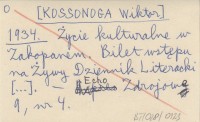 O
[KOSSONOGA Wiktor]
1934. Życie kulturalne w
Zakopanem. Bilet wstępu
na Żywy Dziennik Literacki
[...]. – Echo Zdrojowe
9, nr 4.